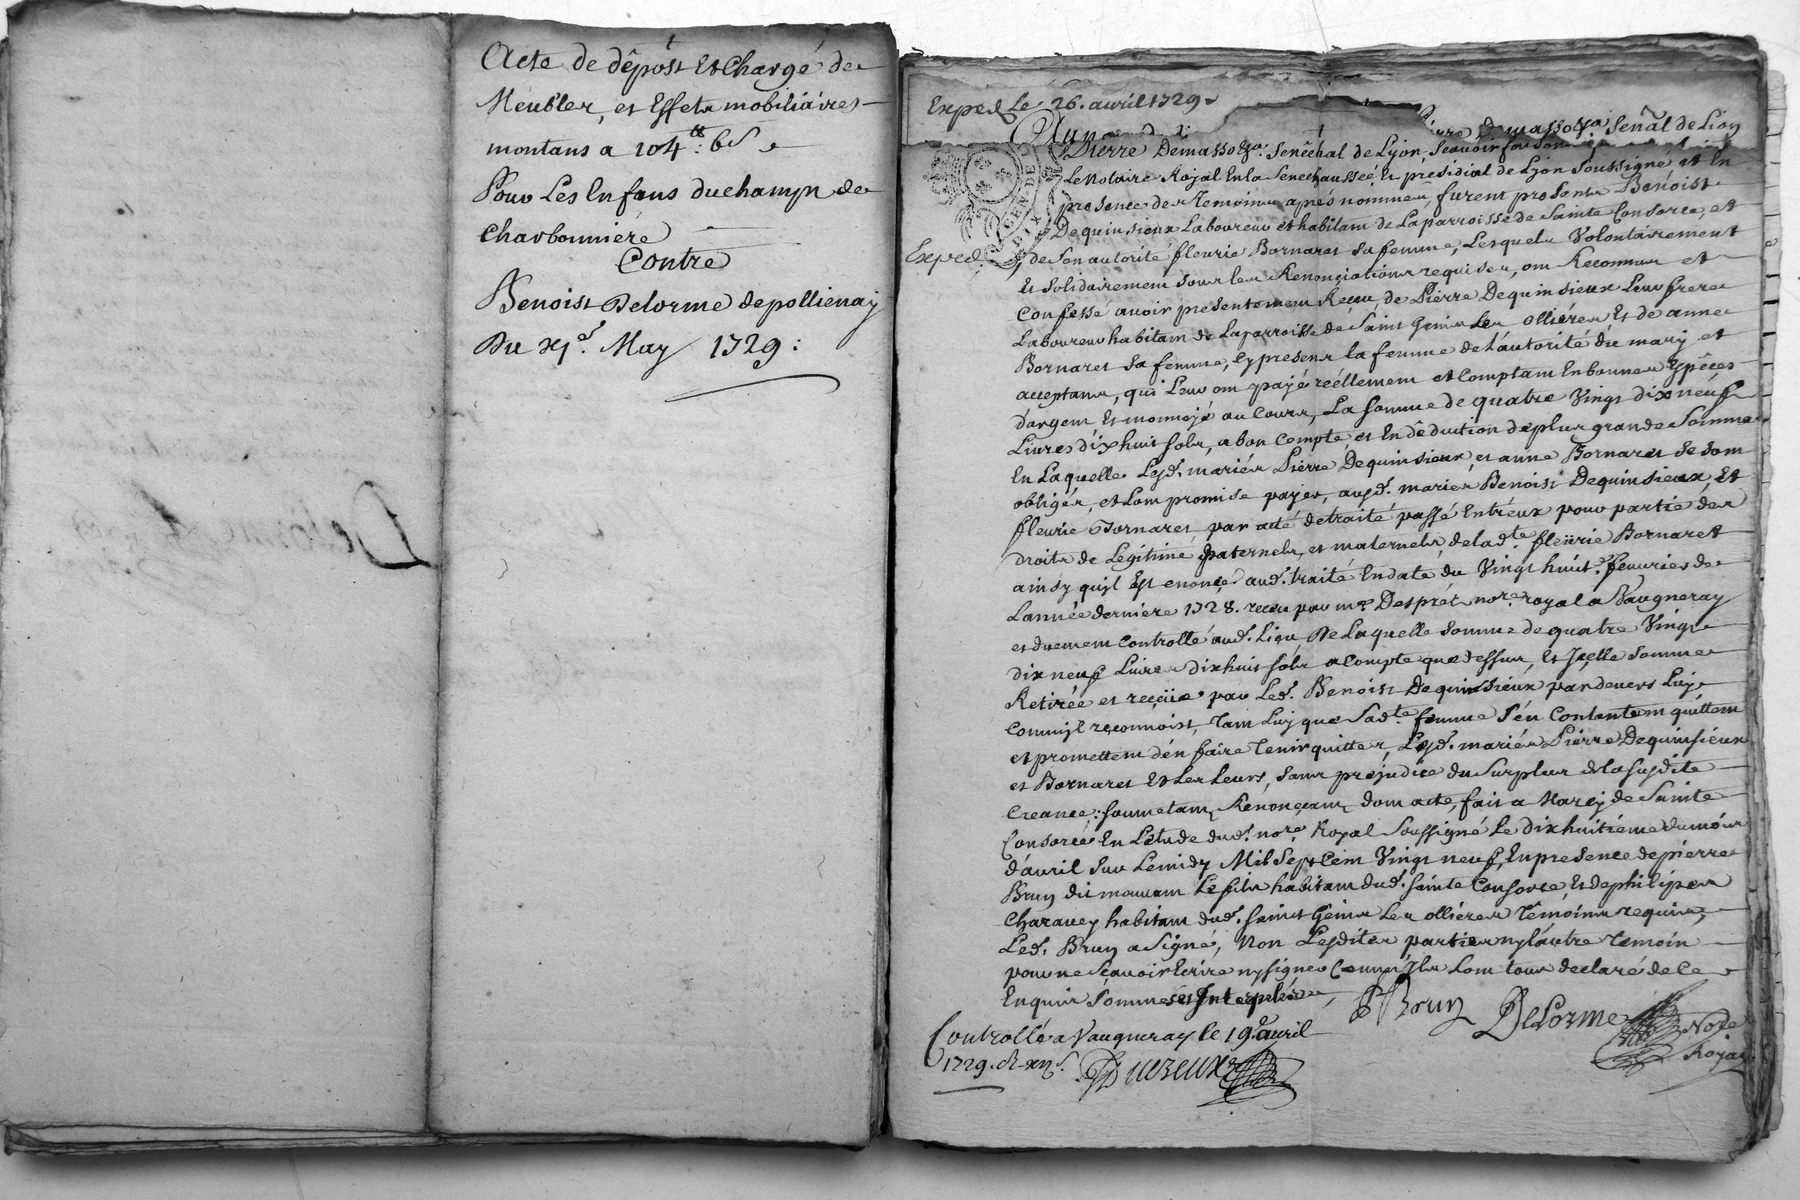 Acte de dêpost Et Chargé de
Meubles, et Effets mobiliaires
montans a 104ᵗᵗ: 6s
Pour Les Enfans duchamp de
Charbonniere
Contre
Benoist Delorme depollienay
Du xjᵉ. May 1729:
Exped. Le 26. avril 1729.
Senâl de Lion
Pierre Demasso &ra. Senêchal de Lyon, Scavoir faisons
Le Notaire Royal En la Senechaussée et presidial de Lyon Soussigné et En
presence des Temoins aprés nommes, furent presents Benoist
Dequinsieux Laboureur et habitant de La parroisse de Sainte Consorce, et
Exped.
de Son autorité fleurie Bornaret Sa femme, Lesquels Volontairement
Et Solidairement Sous les Renonciations requises, ont Reconnus et
Confessé avoir presentement Receu de Pierre Dequinsieux Leur frere
Laboureur habitant de La parroisse de Saint Genis Les Ollieres Et de anne
Bornaret Sa femme, cy presens la femme de L'autorité du mary et
acceptans, qui Leur ont payé réellement et Comptant En bonnes Espêces
d'argent Et monnoyé au Cours, La Somme de quatre Vingt dix neuf
Livres dix huit Sols, a bon Compte et En dêduction de plus grande Somme
En Laquelle Lesd. mariés Pierre Dequinsieux, et anne Bornaret Se Sont
obligés, et Sont promise payer, ausd. maries Benoist Dequinsieux, et
fleurie Bornaret par acte de traité passé Entreux pour partie des
droits de Legitime paternels, et maternels de lad.te fleurie Bornaret
ainsy quil Est enoncé aud. traité En date du Vingt huit.e fevrier de
L'année derniere 1728. receu par me. Desprét not.re royal a Vaugneray
et duement Controllé aud. Lieu, De Laquelle Somme de quatre Vingt
dix neuf Livres dixhuit Sols a Compte que dessus, Et Icelle Somme
Retirée et reçüe par Led. Benoist Dequinsieux pardevers Luy
Comm'jl reconnoist, Tant Luy que Sad.te femme S'en Contentent quittent
et promettent d'en faire Tenir quittes, Lesd. mariés Pierre Dequinsieux
et Bornaret Et Les Leurs, Sans préjudice du Surplus de la Susdite
Creance: Soumettans, Renonçeant, dont acte, fait a Marcy de Sainte
Consorce En L'etude dud. not.re Royal Soussigné Le dixhuitiéme du mois
d'avril Sur Lemidy Mil Sept Cent Vingt neuf, En presence de pierre
Brun dit mouvant Le fils habitant dud. Sainte Consorce, Et de philipes
Charavey habitant dud. Saint Genis Les ollieres Témoins requis,
Led. Brun a Signé, Non Lesdites parties ny l'autre Temoin
pour ne Scavoir Ecrire ny signer Comm'Ils Sont tous declaré de Ce
Enquis Sommés et Interpelés
P Brun Delorme Not.re
Royal
Controllé a Vaugneray le 19.e avril
1729. R. xij s.
Duereux